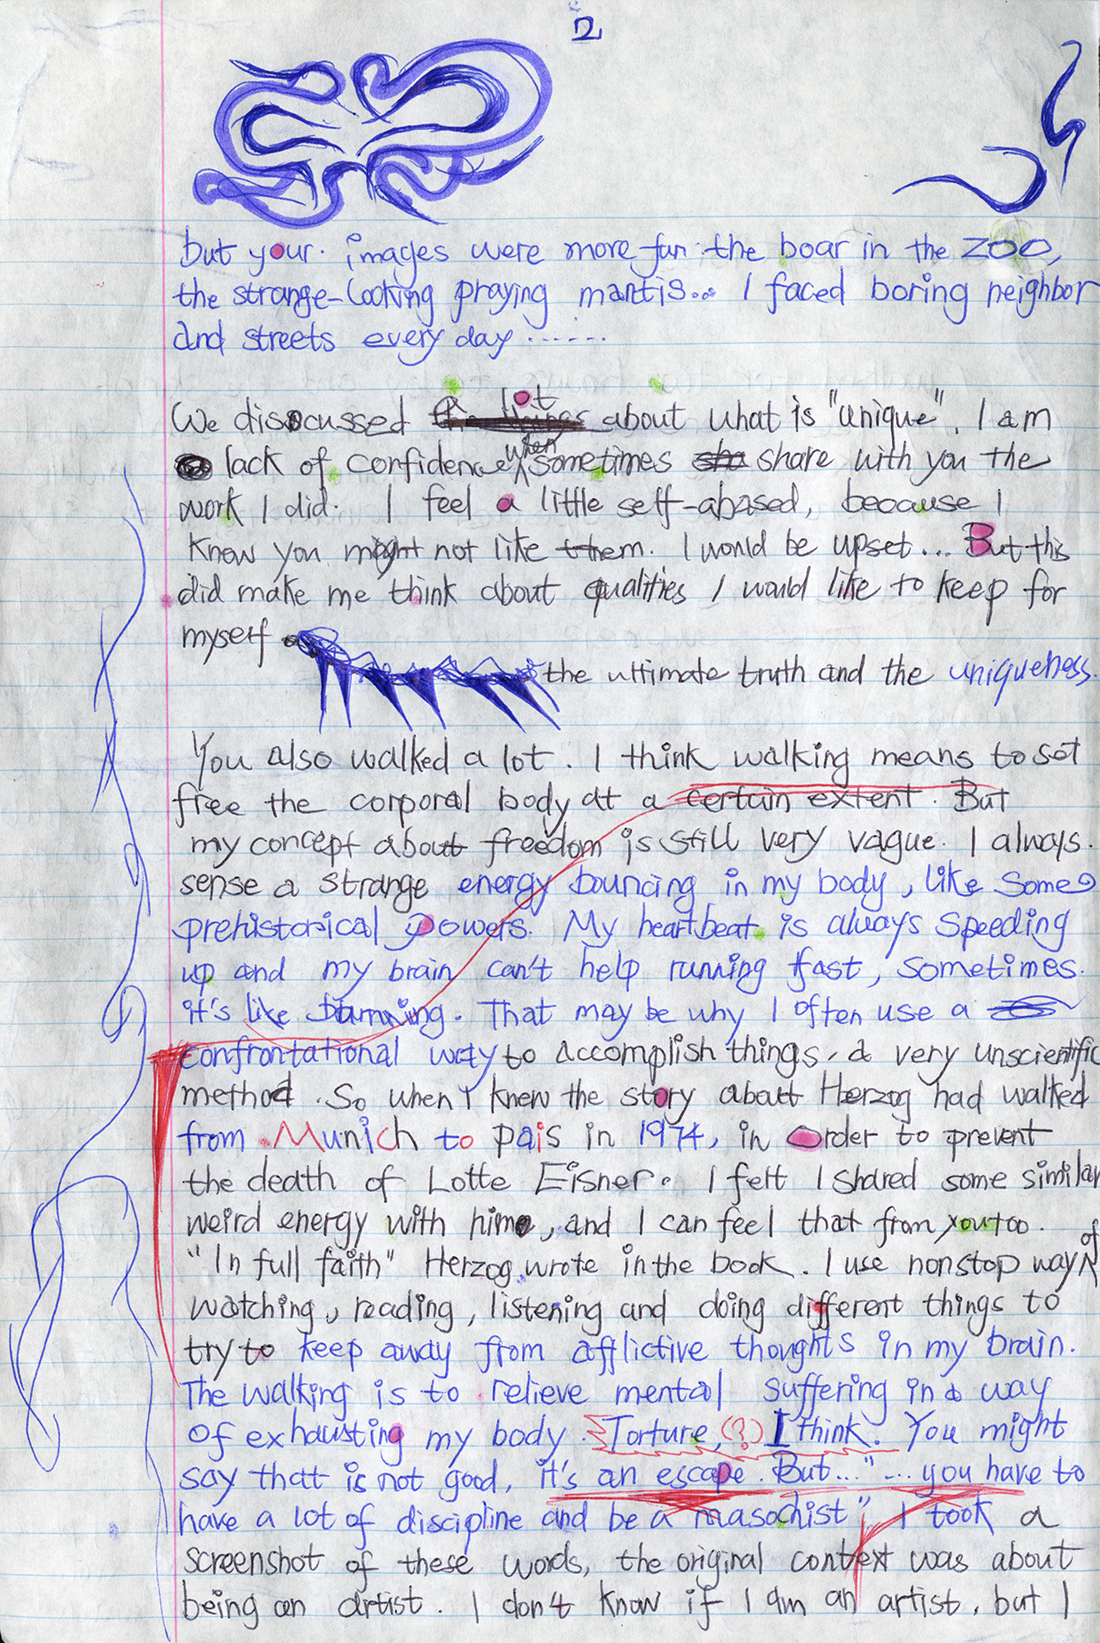 2
but your images were more fun: the boar in the zoo,
the strange-looking praying mantis... I faced boring neighbor
and streets every day ......
We discussed lot about what is "unique". I am
lack of confidence when sometimes share with you the
work I did. I feel a little self-abased, because I
know you might not like them. I would be upset... But this
did make me think about qualities I would like to keep for
myself
the ultimate truth and the uniqueness.
You also walked a lot. I think walking means to set
free the corporal body at a certain extent. But
my concept about freedom is still very vague. I always
sense a strange energy bouncing in my body, like some
prehistorical powers. My heartbeat is always speeding
up and my brain can't help running fast, sometimes
it's like burning. That may be why I often use a
confrontational way to accomplish things, a very unscientific
method. So when I knew the story about Herzog had walked
from Munich to pais in 1974, in order to prevent
the death of Lotte Eisner. I felt I shared some similar
weird energy with him, and I can feel that from you too.
"In full faith" Herzog wrote in the book. I use nonstop way of
watching, reading, listening and doing different things to
try to keep away from afflictive thoughts in my brain.
The walking is to relieve mental suffering in a way
of exhausting my body. Torture, (?) I think. You might
say that is not good, it's an escape. But..."... you have to
have a lot of discipline and be a masochist", I took a
screenshot of these words, the original context was about
being an artist. I don't know if I am an artist, but I